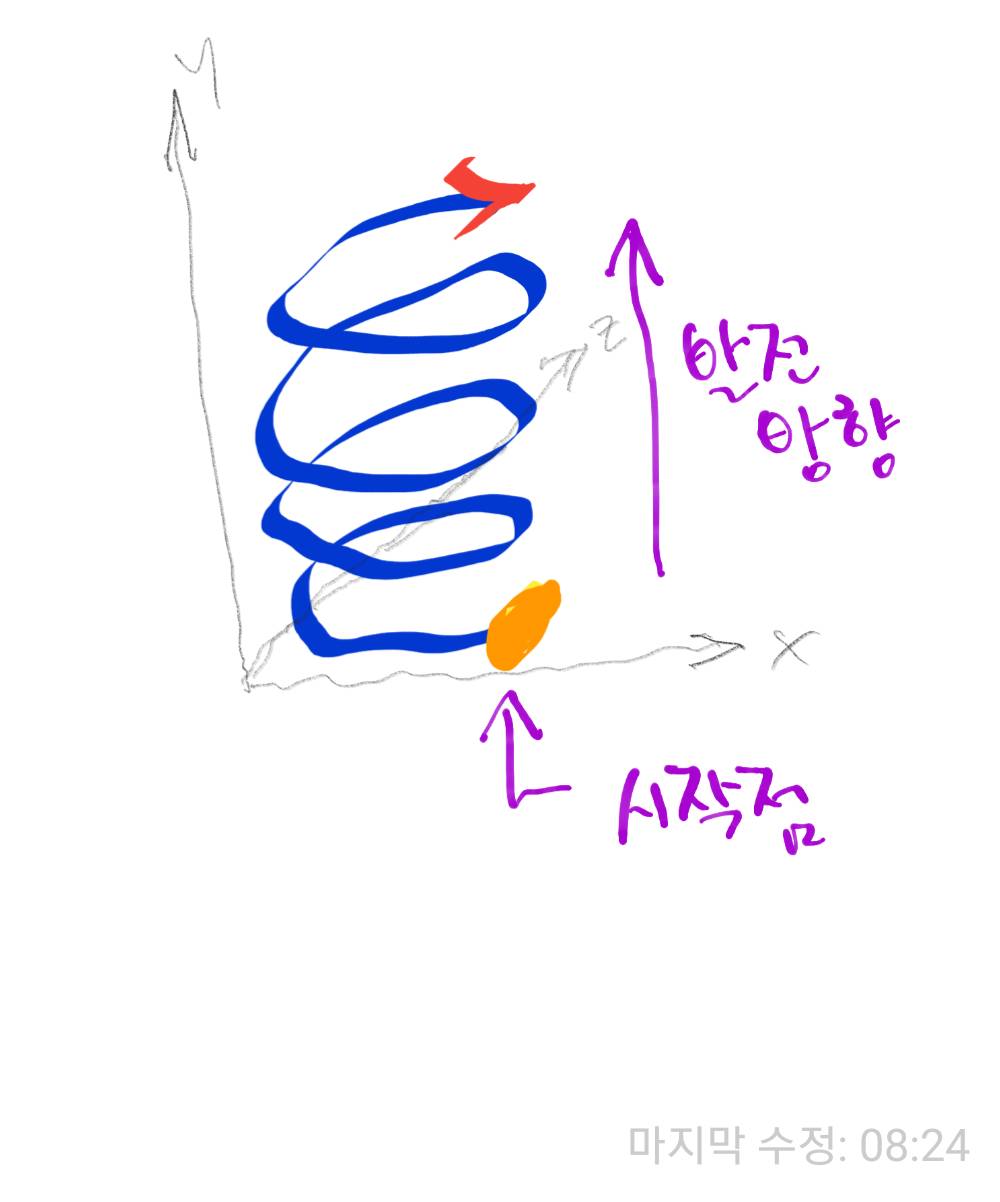 Y
Z
발전
방향
X
시작점
마지막 수정: 08:24